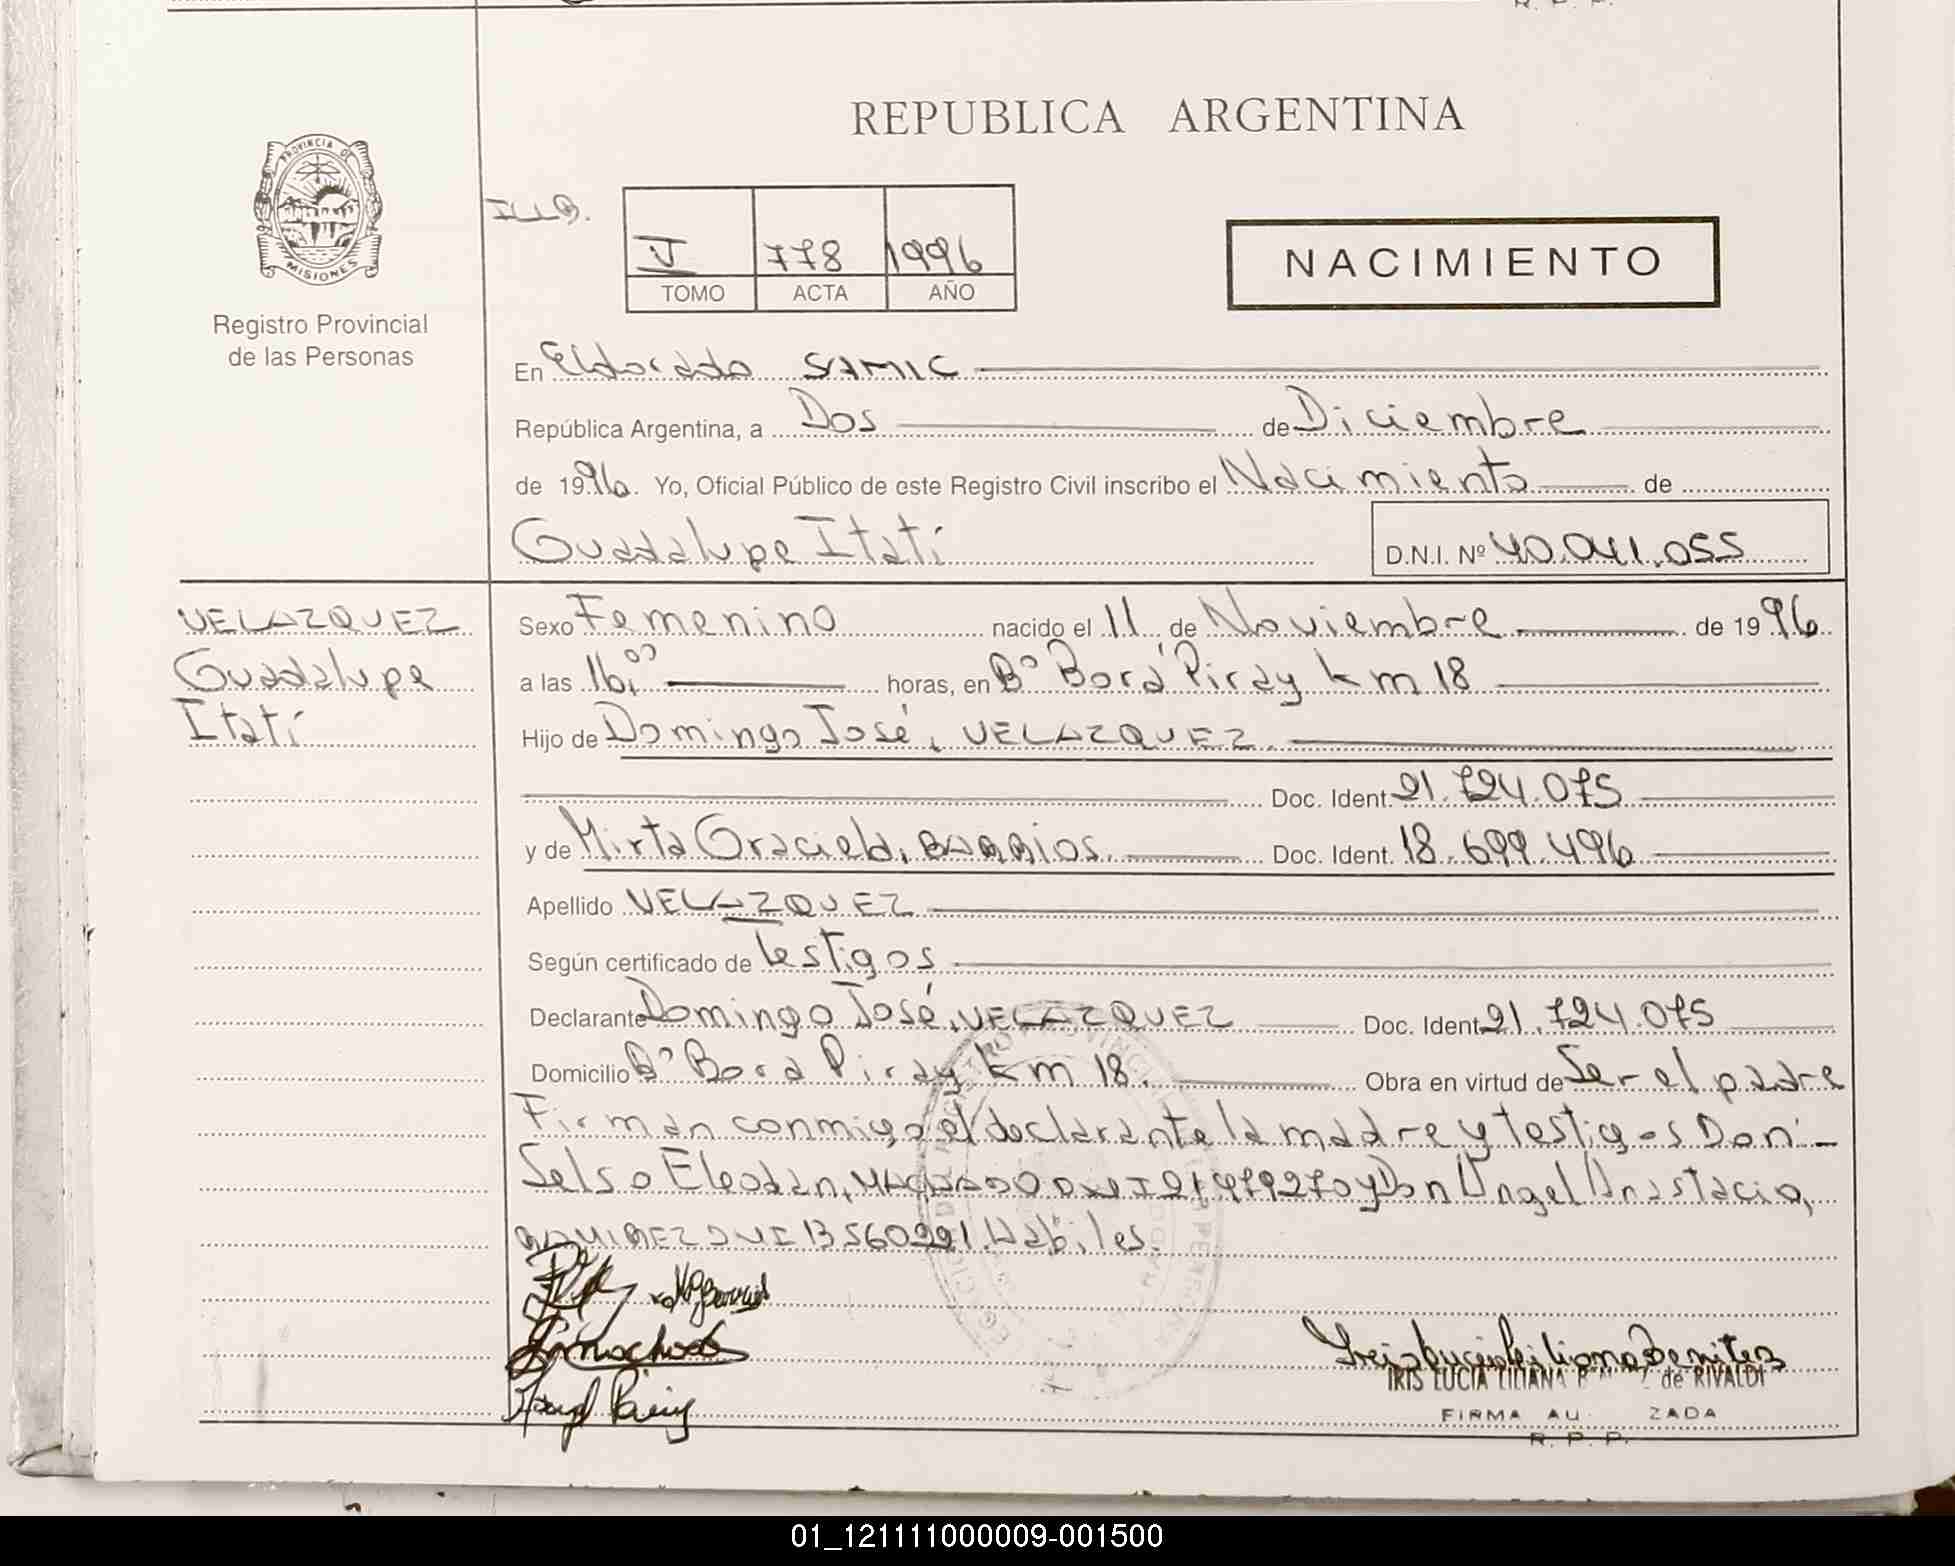 REPUBLICA ARGENTINA
PROVINCIA DE
MISIONES
Registro Provincial
de las Personas
I.L.L.B.
J 778 1996
TOMO ACTA AÑO
NACIMIENTO
En Eldorado SAMIC
República Argentina, a Dos de Diciembre
de 1996. Yo, Oficial Público de este Registro Civil inscribo el Nacimiento de
Guadalupe Itatí D.N.I. Nº 40.041.055
VELAZQUEZ
Guadalupe
Itatí
Sexo Femenino nacido el 11 de Noviembre de 1996
a las 16,00 horas, en Bº Borá Piray km 18
Hijo de Domingo José, VELAZQUEZ.
Doc. Ident. 21.724.075
y de Mirta Graciela, BARRIOS. Doc. Ident. 18.699.496
Apellido VELAZQUEZ
Según certificado de testigos
Declarante Domingo José, VELAZQUEZ Doc. Ident. 21.724.075
Domicilio Bº Bora Piray km 18. Obra en virtud de Ser el padre
Firman conmigo el declarante la madre y testigos Don
Selso Eleodan, DNI 21479270 y Don Angel Anastacio,
RAMIREZ DNI 13560991. Hábiles.
IRIS LUCIA LILIANA de RIVALDI
FIRMA AU ZADA
R. P. P.
01_121111000009-001500